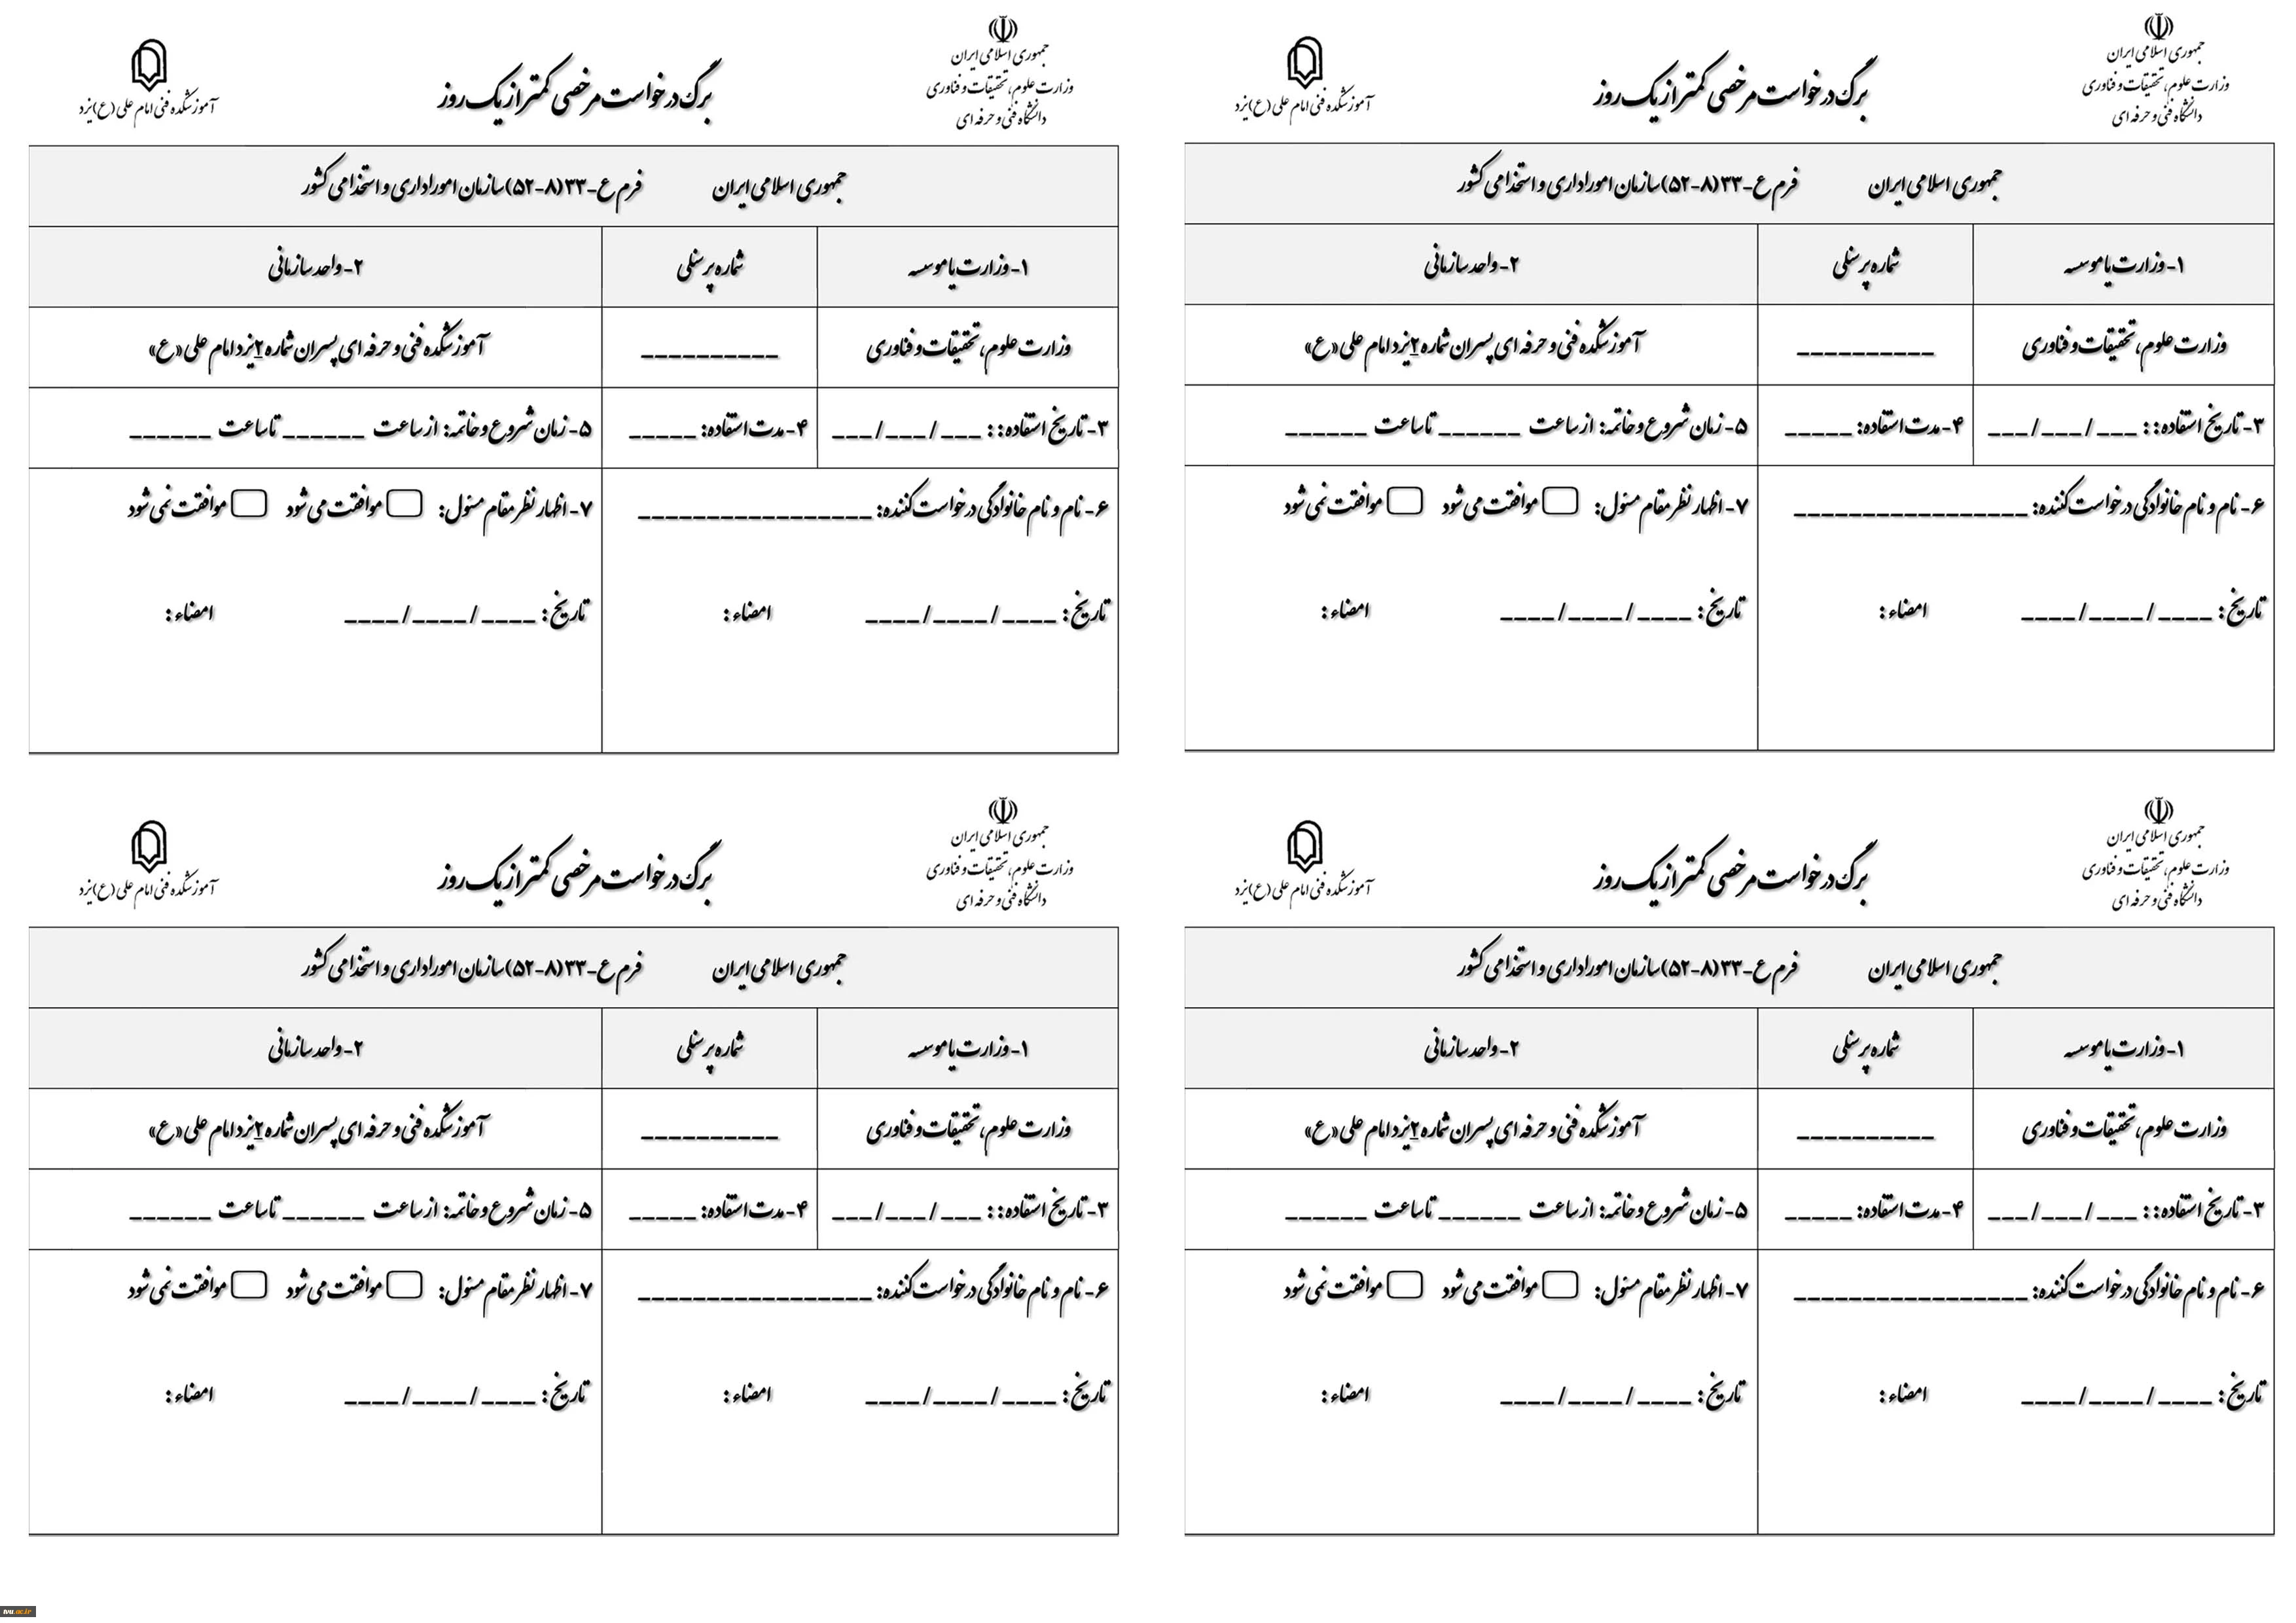 جمهوری اسلامی ایران
وزارت علوم، تحقیقات و فناوری
دانشگاه فنی و حرفه ای
برگ درخواست مرخصی کمتر از یک روز
آموزشکده فنی امام علی (ع) یزد
جمهوری اسلامی ایران فرم ع-۳۳(۸-۵۲) سازمان امور اداری و استخدامی کشور
۱- وزارت یا موسسه شماره پرسنلی ۲- واحد سازمانی
وزارت علوم، تحقیقات و فناوری __________ آموزشکده فنی و حرفه ای پسران شماره ۲ یزد امام علی «ع»
۳- تاریخ استفاده: : ___/___/___ ۴- مدت استفاده: _____ ۵- زمان شروع و خاتمه: از ساعت ______ تا ساعت ______
۶- نام و نام خانوادگی درخواست کننده: _________________ ۷- اظهار نظر مقام مسئول: موافقت می شود موافقت نمی شود
تاریخ: ____/____/____ امضاء: تاریخ: ____/____/____ امضاء:
جمهوری اسلامی ایران
وزارت علوم، تحقیقات و فناوری
دانشگاه فنی و حرفه ای
برگ درخواست مرخصی کمتر از یک روز
آموزشکده فنی امام علی (ع) یزد
جمهوری اسلامی ایران فرم ع-۳۳(۸-۵۲) سازمان امور اداری و استخدامی کشور
۱- وزارت یا موسسه شماره پرسنلی ۲- واحد سازمانی
وزارت علوم، تحقیقات و فناوری __________ آموزشکده فنی و حرفه ای پسران شماره ۲ یزد امام علی «ع»
۳- تاریخ استفاده: : ___/___/___ ۴- مدت استفاده: _____ ۵- زمان شروع و خاتمه: از ساعت ______ تا ساعت ______
۶- نام و نام خانوادگی درخواست کننده: _________________ ۷- اظهار نظر مقام مسئول: موافقت می شود موافقت نمی شود
تاریخ: ____/____/____ امضاء: تاریخ: ____/____/____ امضاء:
جمهوری اسلامی ایران
وزارت علوم، تحقیقات و فناوری
دانشگاه فنی و حرفه ای
برگ درخواست مرخصی کمتر از یک روز
آموزشکده فنی امام علی (ع) یزد
جمهوری اسلامی ایران فرم ع-۳۳(۸-۵۲) سازمان امور اداری و استخدامی کشور
۱- وزارت یا موسسه شماره پرسنلی ۲- واحد سازمانی
وزارت علوم، تحقیقات و فناوری __________ آموزشکده فنی و حرفه ای پسران شماره ۲ یزد امام علی «ع»
۳- تاریخ استفاده: : ___/___/___ ۴- مدت استفاده: _____ ۵- زمان شروع و خاتمه: از ساعت ______ تا ساعت ______
۶- نام و نام خانوادگی درخواست کننده: _________________ ۷- اظهار نظر مقام مسئول: موافقت می شود موافقت نمی شود
تاریخ: ____/____/____ امضاء: تاریخ: ____/____/____ امضاء:
جمهوری اسلامی ایران
وزارت علوم، تحقیقات و فناوری
دانشگاه فنی و حرفه ای
برگ درخواست مرخصی کمتر از یک روز
آموزشکده فنی امام علی (ع) یزد
جمهوری اسلامی ایران فرم ع-۳۳(۸-۵۲) سازمان امور اداری و استخدامی کشور
۱- وزارت یا موسسه شماره پرسنلی ۲- واحد سازمانی
وزارت علوم، تحقیقات و فناوری __________ آموزشکده فنی و حرفه ای پسران شماره ۲ یزد امام علی «ع»
۳- تاریخ استفاده: : ___/___/___ ۴- مدت استفاده: _____ ۵- زمان شروع و خاتمه: از ساعت ______ تا ساعت ______
۶- نام و نام خانوادگی درخواست کننده: _________________ ۷- اظهار نظر مقام مسئول: موافقت می شود موافقت نمی شود
تاریخ: ____/____/____ امضاء: تاریخ: ____/____/____ امضاء: